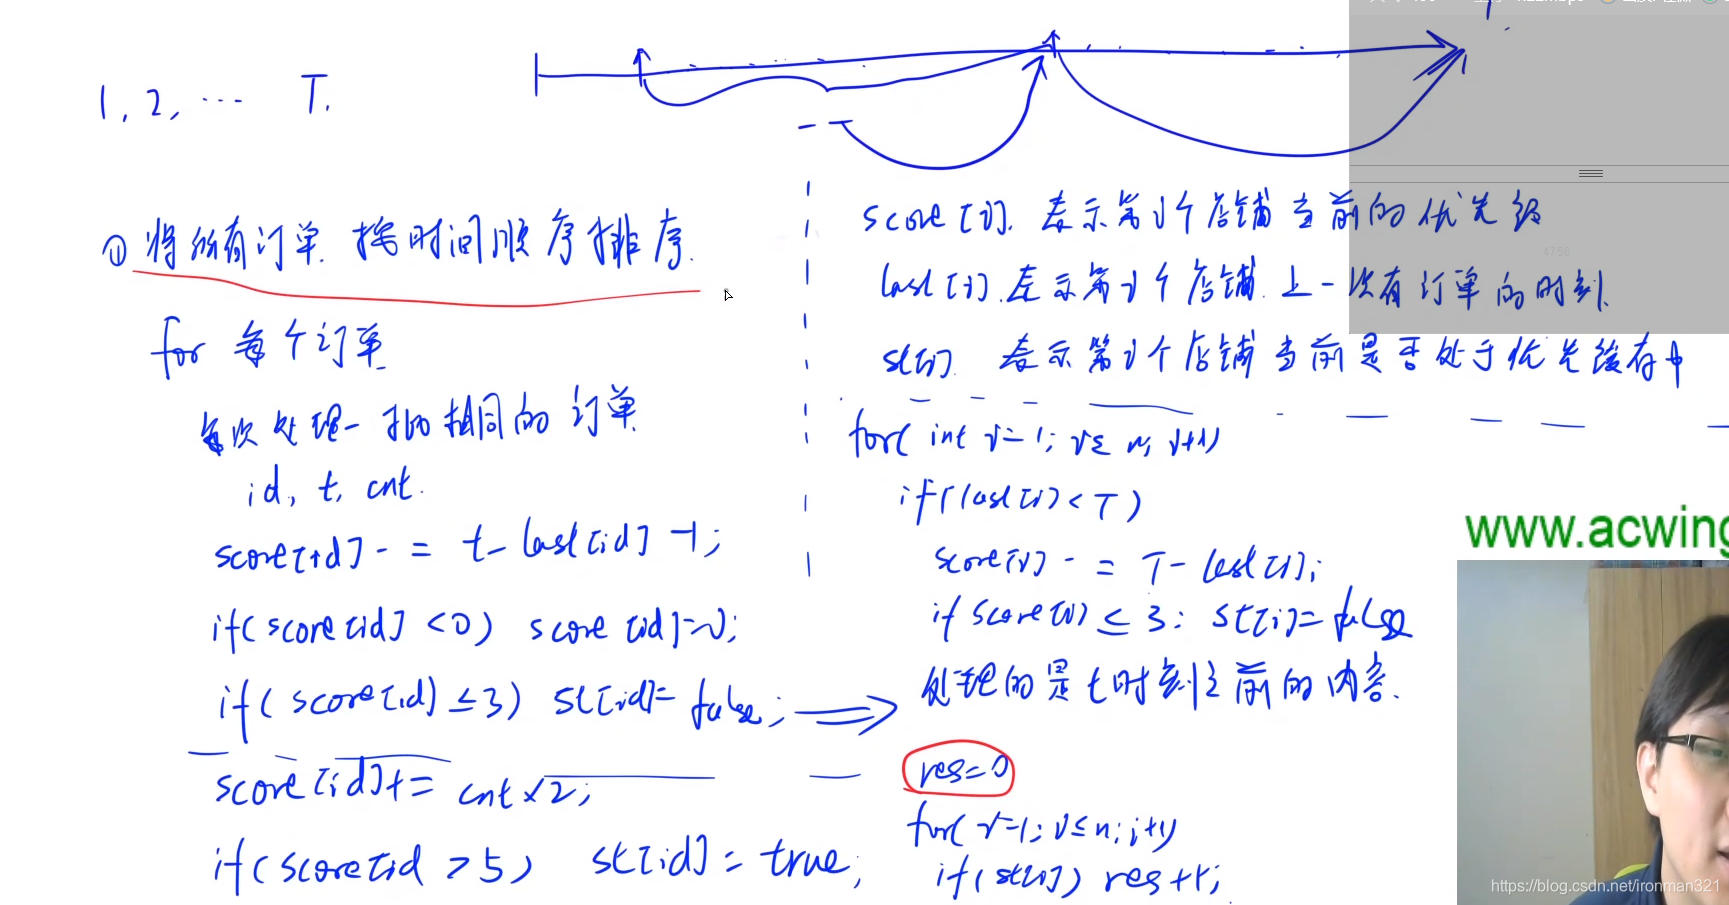 1, 2, … T.
① 将所有订单 按时间顺序排序.
for 每个订单
每次处理一批相同的订单
id, t, cnt.
score[id] -= t - last[id] -1;
if(score[id] <0) score[id]=0;
if(score[id] ≤3) st[id]= false;
score[id]+= cnt×2;
if(score[id >5) st[id] = true;
score[i]. 表示第i个店铺当前的优先级
last[i]. 表示第i个店铺 上一次有订单的时刻.
st[i]. 表示第i个店铺当前是否处于优先缓存中
for( int i=1; i≤ n; i++)
if(last[i]< T)
score[i] -= T- last[i];
if score[i] ≤ 3: st[i]= false
处理的是t时刻之前的内容.
res=0
for( i=1; i≤n; i++)
if(st[i]) res++;
4756
www.acwing
https://blog.csdn.net/ironman321